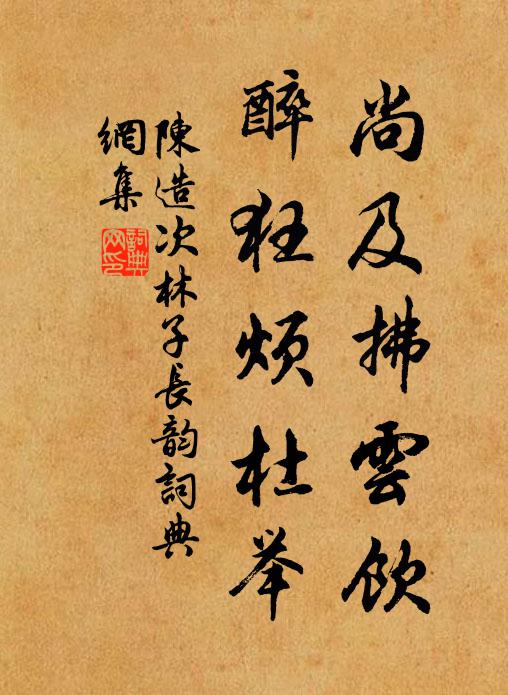 尚及拂雲飲
醉狂煩杜举
陳造次林子長韵詞典
網集
詞典
网印